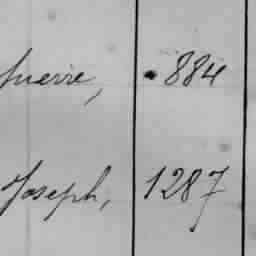 Pierre, 884
Joseph, 1287